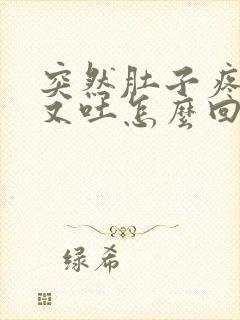 突然肚子疼
又吐怎麼回
绿希